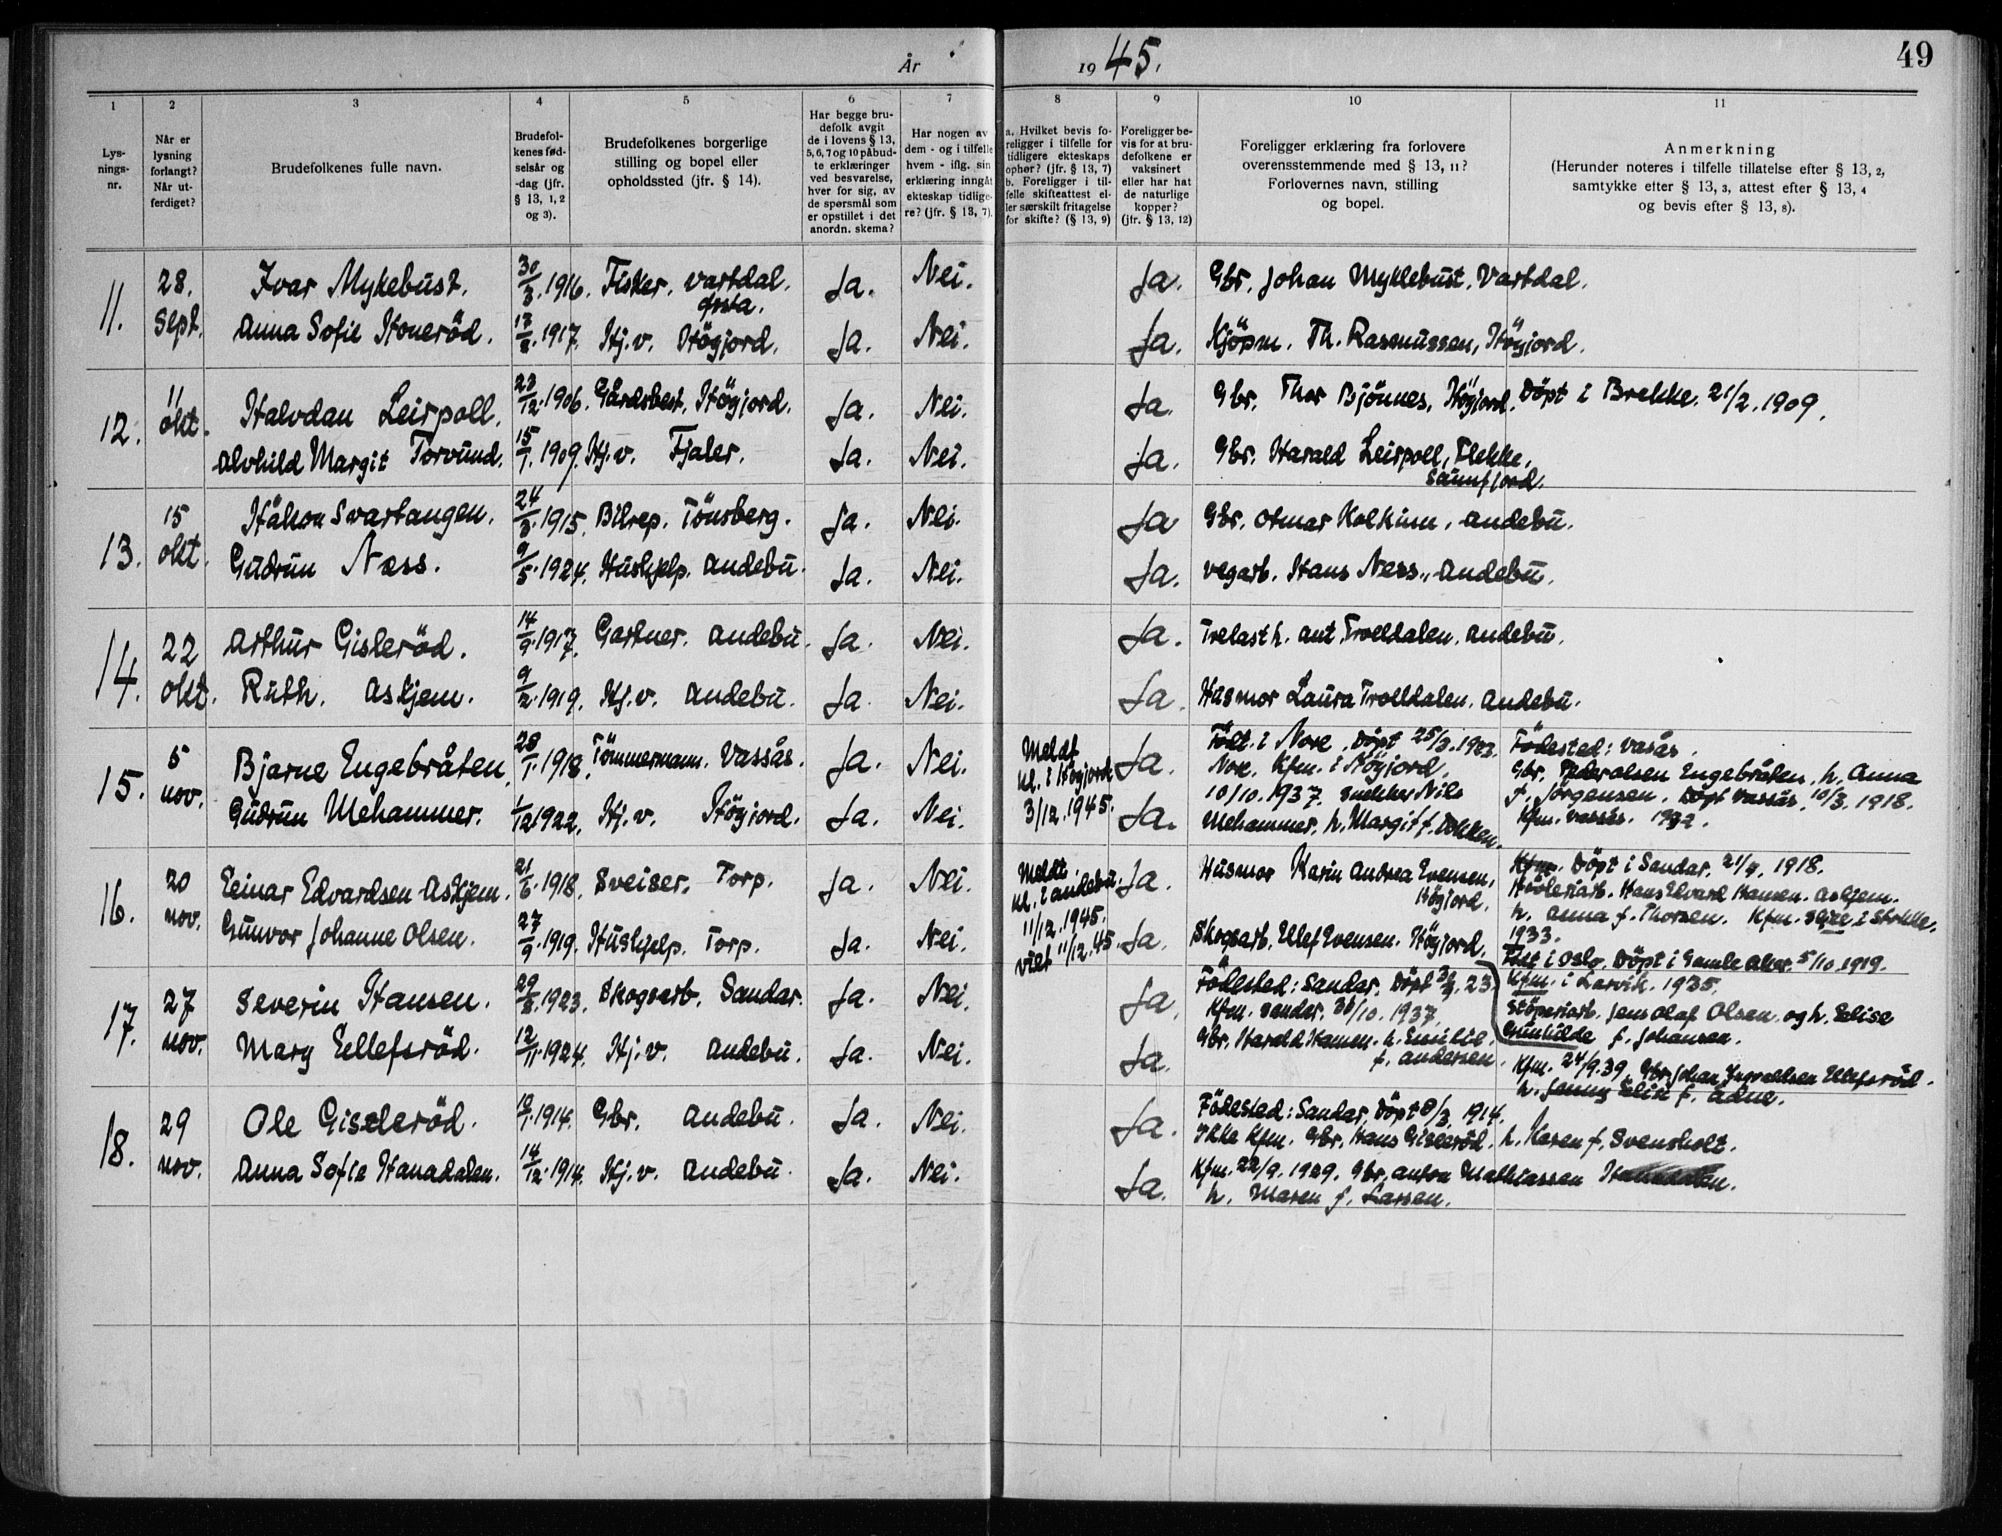 År 1945.
49
1
Lys-
nings-
nr.
2
Når er
lysning
forlangt?
Når ut-
ferdiget?
3
Brudefolkenes fulle navn.
4
Brudefol-
kenes fød-
selsår og
-dag (jfr.
§ 13, 1, 2
og 3).
5
Brudefolkenes borgerlige
stilling og bopel eller
opholdssted (jfr. § 14).
6
Har begge bru-
defolk avgit
de i lovens § 13,
5, 6, 7 og 10 påbud-
te erklæringer
ved besvarelse,
hver for sig, av
de spørsmål som
er opstillet i det
anordn. skema?
7
Har nogen av
dem - og i tilfelle
hvem - iflg. sin
erklæring inngåt
ekteskap tidlige-
re? (jfr. § 13, 7).
8
a. Hvilket bevis fo-
religger i tilfelle for
tidligere ekteskaps
ophør? (jfr. § 13, 7)
b. Foreligger i til-
felle skifteattest el-
ler særskilt fritagelse
for skifte? (§ 13, 9)
9
Foreligger be-
vis for at bru-
defolkene er
vaksinert
eller har hat
de naturlige
kopper?
(jfr. § 13, 12)
10
Foreligger erklæring fra forlovere
overensstemmende med § 13, 11?
Forlovernes navn, stilling
og bopel.
11
Anmerkning
(Herunder noteres i tilfelle tillatelse efter § 13, 2,
samtykke efter § 13, 3, attest efter § 13, 4
og bevis efter § 13, 8).
11. 28. Sept. Ivar Mykebust. 30/3.1916. Fisker. Vartdal. Ørsta. Ja. Nei. Ja. Gbr. Johan Myklebust. Vartdal.
Anna Sofie Honeröd. 1917. Hj.v. Högjord. Ja. Nei. Ja. Kjöpm. Th. Rasmussen, Högjord.
12. 11 okt. Halvdan Leirpoll. 23/12.1906. Gårdsbest. Högjord. Ja. Nei. Ja. Gbr. Thor Bjönnes, Högjord. Döpt i Brekke. 21/2.1909.
Alvhild Margit Torvund. 15/1.1909. Hj.v. Fjaler. Ja. Nei. Ja. Gbr. Harald Leirpoll, Flekke,
Sunnfjord.
13. 15 okt. Håkon Svartangen. 24/8.1915. Bilrep. Tönsberg. Ja. Nei. Ja Gbr. Otmar Kolkinn, Andebu.
Gudrun Næss. 9/5.1924. Hushjelp. Andebu. Ja. Nei. Ja. Vegarb. Hans Ness, Andebu.
14. 22 okt. Arthur Gisleröd. 14/9.1917. Gartner. Andebu. Ja. Nei. Ja. Trelasth. Ant. Trolldalen. Andebu.
Ruth. Askjem. 9/2.1919. Hj.v. Andebu. Ja. Nei. Ja. Husmor Laura Trolldalen. Andebu.
15. 5 nov. Bjarne Engebråten. 28/1.1918. Tömmermann. Vassås. Ja. Nei. Meldt kl. i Högjord 3/12.1945. Ja.
Gudrun Mehammer. 1/12 1922. Hj.v. Högjord. Ja. Nei. Ja.
Födt. i Nore. Döpt 25/3.1923.
Nore. Kfm. i Högjord.
10/10.1937. Snekker Nils
Mehammer. h. Margit f. Dokken.
Födested: Vasås.
Gbr. Peder Olsen Engebråten, h. Anna
f. Jörgensen. Döpt Vassås. 10/3.1918.
Kfm. Vassås. 1932.
16. 20 nov. Einar Edvardsen Askjem. 21/6.1918. Sveiser. Torp. Ja. Nei. Meldt. kl. i Andebu. 11/12.1945. Viet 11/12.45. Ja. Husmor Karin Andrea Evensen,
Högjord.
Gunvor Johanne Olsen. 27/9.1919. Hushjelp. Torp. Ja. Nei. Ja. Skogsarb. Ellef Evensen. Högjord.
Kfm. Döpt i Sandar. 21/7.1918.
Hövleriarb. Hans Edvard Hansen. Askjem.
h. Anna f. Thorsen. Kfm. Skjee i Stokke.
1933.
Født i Oslo. Döpt i Gamle Aker. 5/10.1919.
Kfm. i Larvik. 1935.
Støperiarb. Jens Olaf Olsen og h. Elise
Gunhilde f. Johansen.
17. 27 nov. Severin Hansen. 29/8.1923. Skogsarb. Sandar. Ja. Nei. Ja. Födested: Sandar. Döpt 23.
Kfm. Sandar. 1937.
Gbr. Harald Hansen. h. Emilie.
f. Andersen.
Mary Ellefsröd. 12/11.1924. Hj.v. Andebu. Ja. Nei. Ja. Kfm. 24/9.39. Gbr. Johan Ingvaldsen Ellefsröd.
h. Jenny Elise f. Adne.
18. 29 nov. Ole Gisleröd. 1914. Gbr. Andebu. Ja. Nei. Ja. Födested: Sandar. Döpt 8/3.1914.
Ikke Kfm. Gbr. Hans Gisleröd. h. Karen f. Svensholt.
Anna Sofie Hanadalen. 14/12.1914. Hj.v. Andebu. Ja. Nei. Ja. Kfm. 22/9.1929. Gbr. Anton Mathiassen Hanadalen.
h. Maren f. Larsen.